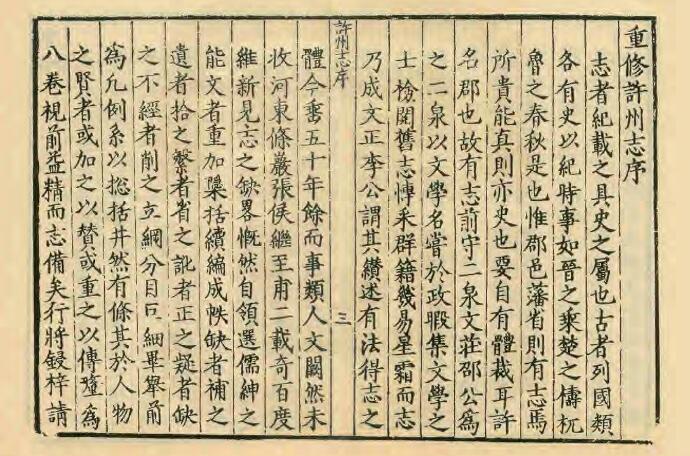 重修許州志序
志者紀載之具史之屬也古者列國類
各有史以紀時事如晉之乘楚之檮杌
魯之春秋是也惟郡邑藩省則有志焉
所貴能真則亦史也要自有體裁耳許
名郡也故有志前守二泉文莊邵公為
之二泉以文學名嘗於政暇集文學之
士檢閱舊志博采群籍幾易星霜而志
乃成文正李公謂其纘述有法得志之
許州志序
三
體今奮五十年餘而事類人文闕然未
收河東條巖張侯繼至甫二載奇百度
維新見志之缺畧慨然自領選儒紳之
能文者重加櫽括續編成帙缺者補之
遺者拾之繁者省之訛者正之疑者缺
之不經者削之立綱分目巨細畢舉前
為凡例系以總括井然有條其於人物
之賢者或加之以贊或重之以傳壐為
八卷視前益精而志備矣行將鋟梓請